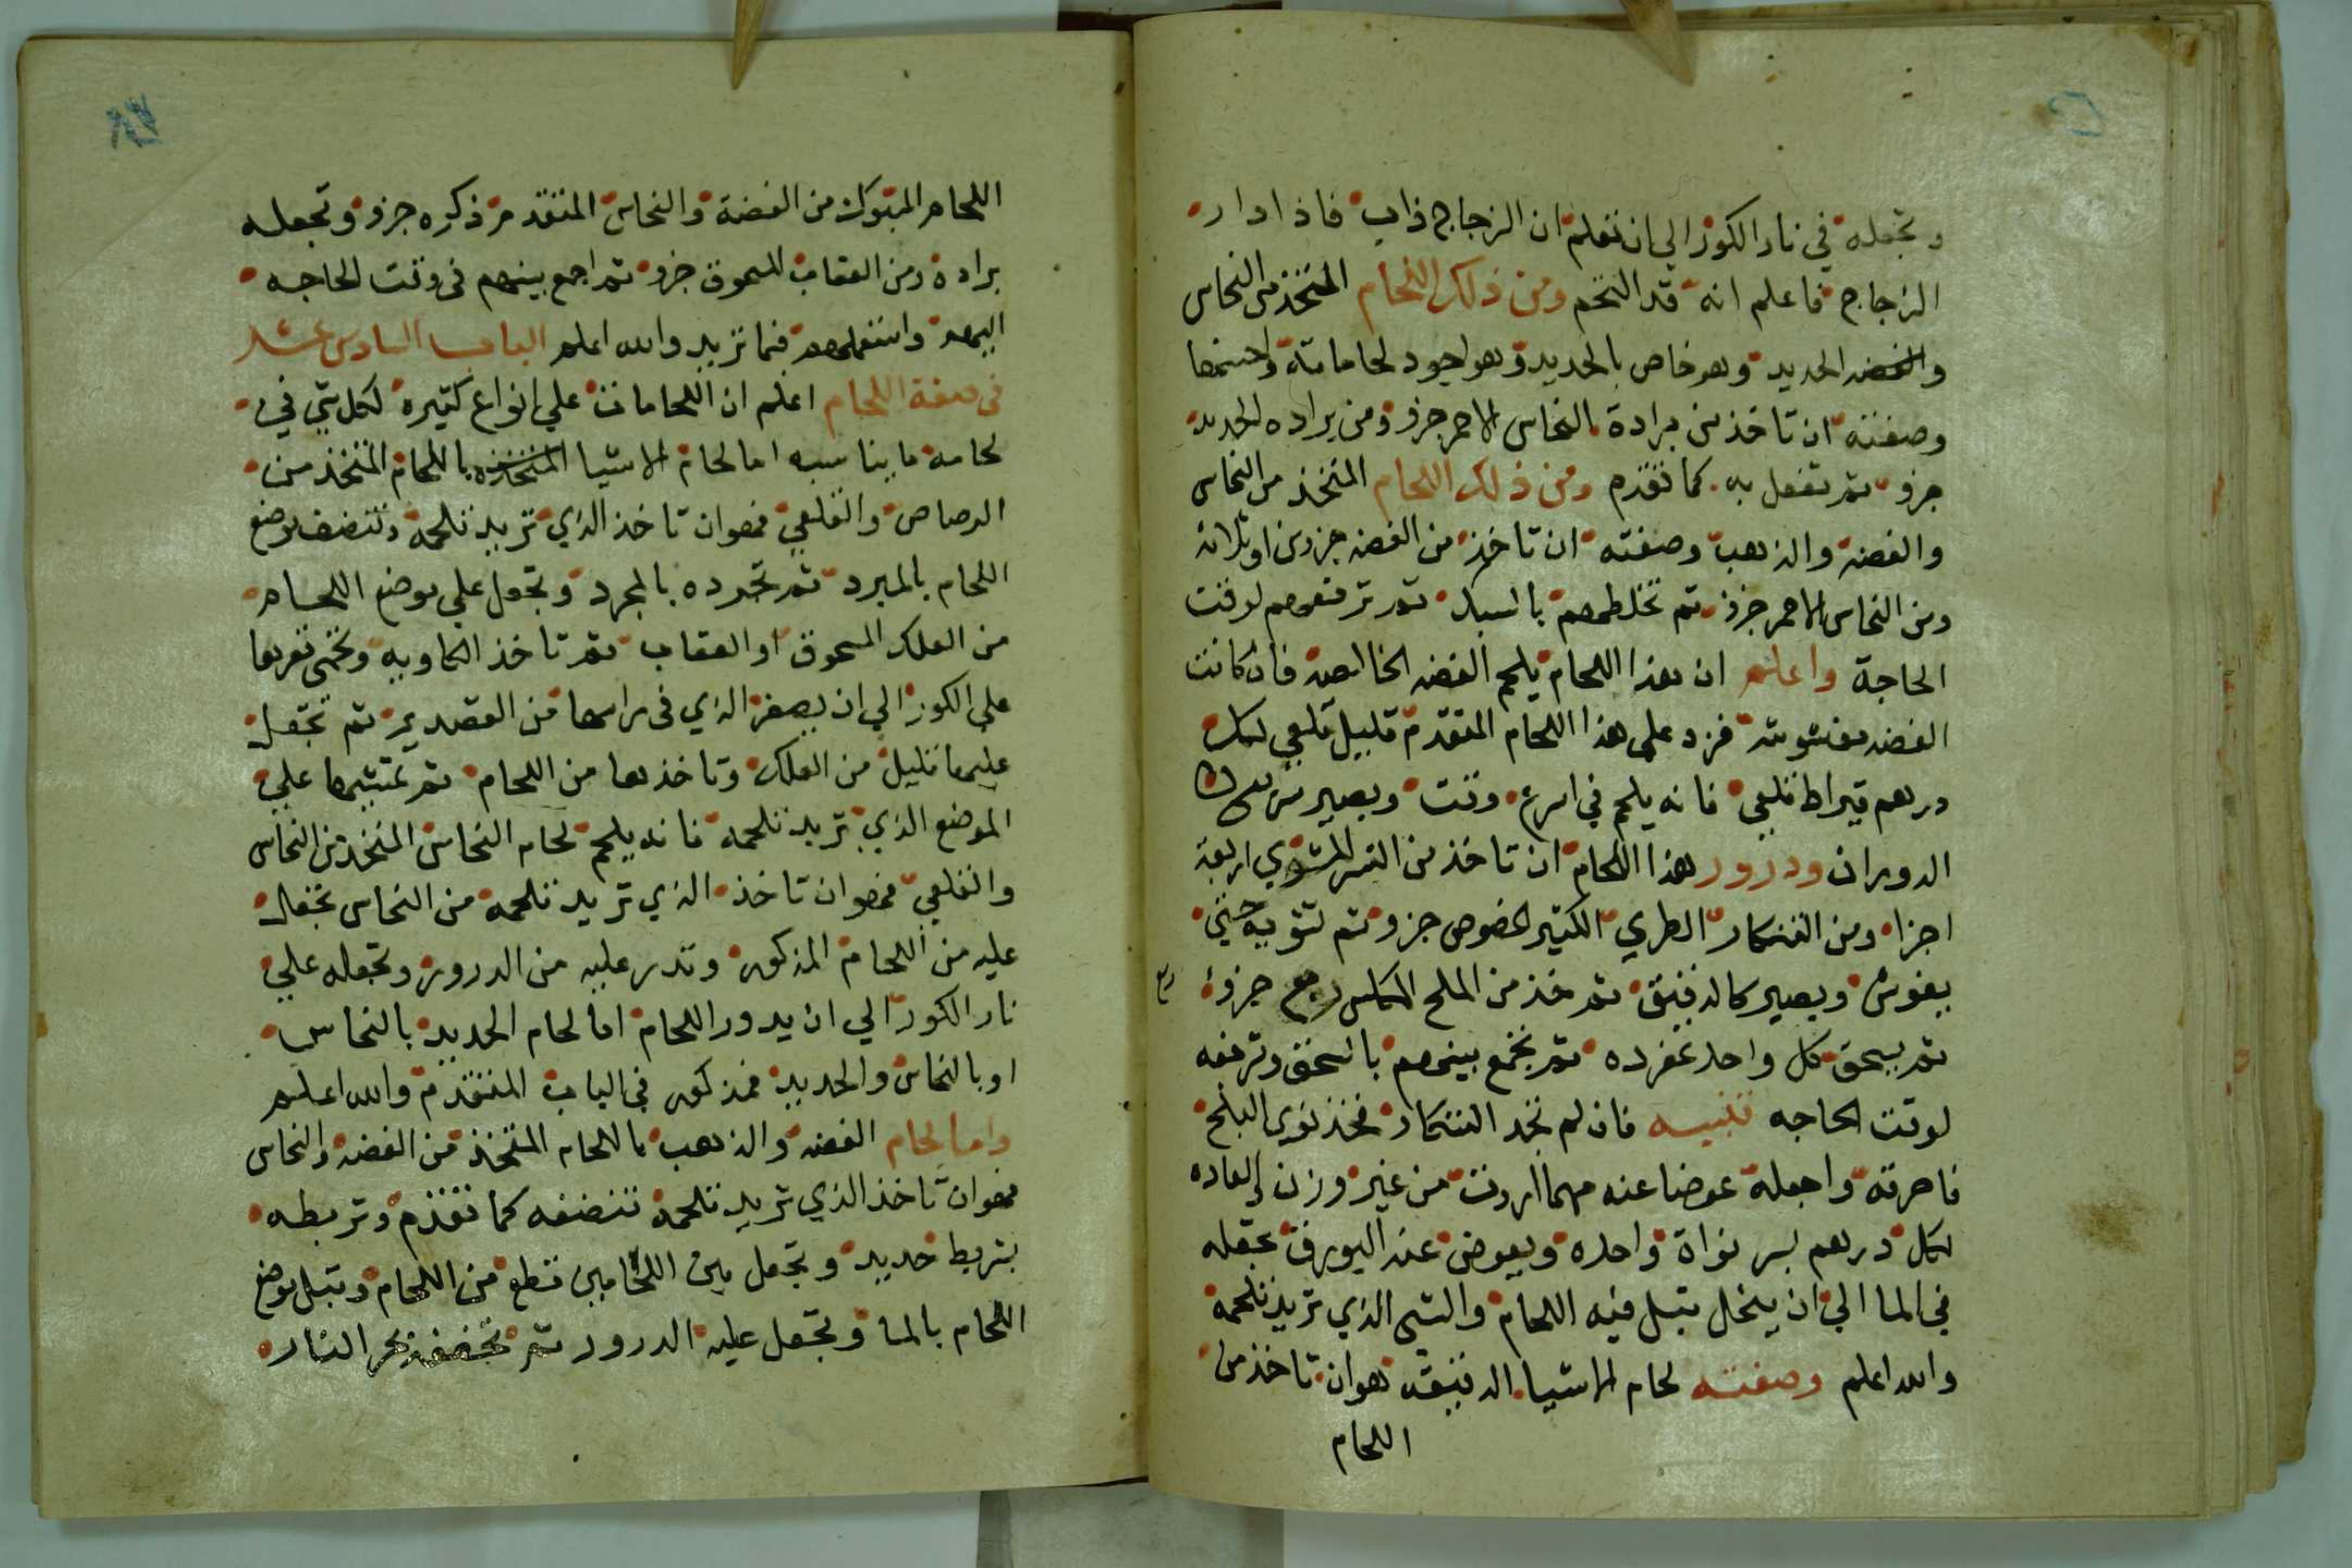 وتجعله في نار الكور الي ان تعلم ان الزجاج ذاب فاذا دار
الزجاج فاعلم انه قد التحم ومن ذلك اللحام المتخذ من النحاس
والحديد وهو خاص بالحديد وهو اجود لحاماته واحسنها
وصفته ان تاخذ من برادة النحاس الاحمر جزو ومن براده الحديد
جزو ثم تفعل به كما تقدم ومن ذلك اللحام المتخذ من النحاس
والفضه والذهب وصفته ان تاخذ من الفضه جزوين او ثلاثه
ومن النحاس الاحمر جزو ثم تخلطهم بالسبك ثم ترفعهم لوقت
الحاجة واعلم ان هذا اللحام يلحم الفضه الخالصه فان كانت
الفضه مغشوشه فزد على هذا اللحام المتقدم قليل قلعي لكل
درهم قيراط قلعي فانه يلحم في اسرع وقت ويصير سريع
الدوران ودرور هذا اللحام ان تاخذ من التمر المشوي اربعة
اجزا ومن التنكار الطري الكثير الخصوص جزو ثم تشويه حتي
يغوش ويصير كالدقيق ثم خذ من الملح المكلس ربع جزو
ثم يسحق كل واحد بمفرده ثم تجمع بينهم بالسحق وترفعه
لوقت الحاجه تنبيه فان لم تجد التنكار فخذ نوي البلح
فاحرقه واجعله عوضا عنه مهما اردت من غير وزن والعاده
لكل درهم بسر نواة واحده ويعوض عنه البورق تجعله
في الما الي ان ينحل تبل فيه اللحام والشي الذي تريد تلحمه
والله اعلم وصفته لحام الاشيا الدقيقه هو ان تاخذ من
اللحام
اللحام المتبوك من الفضة والنحاس المتقدم ذكره جزو وتجعله
برادة ومن العقاب المسحوق جزو ثم اجمع بينهم في وقت الحاجه
اليهم واستعملهم فيما تريد والله اعلم الباب السادس عشر
في صفة اللحام اعلم ان اللحامات علي انواع كثيره لكل شي في
لحامه ما يناسبه اما لحام الاشيا المتخذه باللحام المتخذ من
الرصاص والقلعي فهو ان تاخذ الذي تريد تلحمه وتنضف موضع
اللحام بالمبرد ثم تجرده بالمجرد وتجعل علي موضع اللحام
من العلك المسحوق او العقاب ثم تاخذ الكاويه وتحمي
على الكور الي ان يصفر الذي في راسها من القصدير ثم تجعل
عليها قليل من العلك وتاخذ بها من اللحام ثم تمشيها علي
الموضع الذي تريد تلحمه فانه يلحم لحام النحاس المتخذ من النحاس
والقلعي فهو ان تاخذ الذي تريد تلحمه من النحاس تجعل
عليه من اللحام المذكور وتدر عليه من الدرور وتجعله علي
نار الكور الي ان يدور اللحام اما لحام الحديد بالنحاس
او بالنحاس والحديد فمذكور في الباب المتقدم والله اعلم
واما لحام الفضه والذهب باللحام المتخذ من الفضه والنحاس
فهو ان تاخذ الذي تريد تلحمه تنضفه كما تقدم وتربطه
بشريط حديد وتجعل بين اللحامين قطع من اللحام وتبل موضع
اللحام بالما وتجعل عليه الدرور ثم تجففه بحر النار